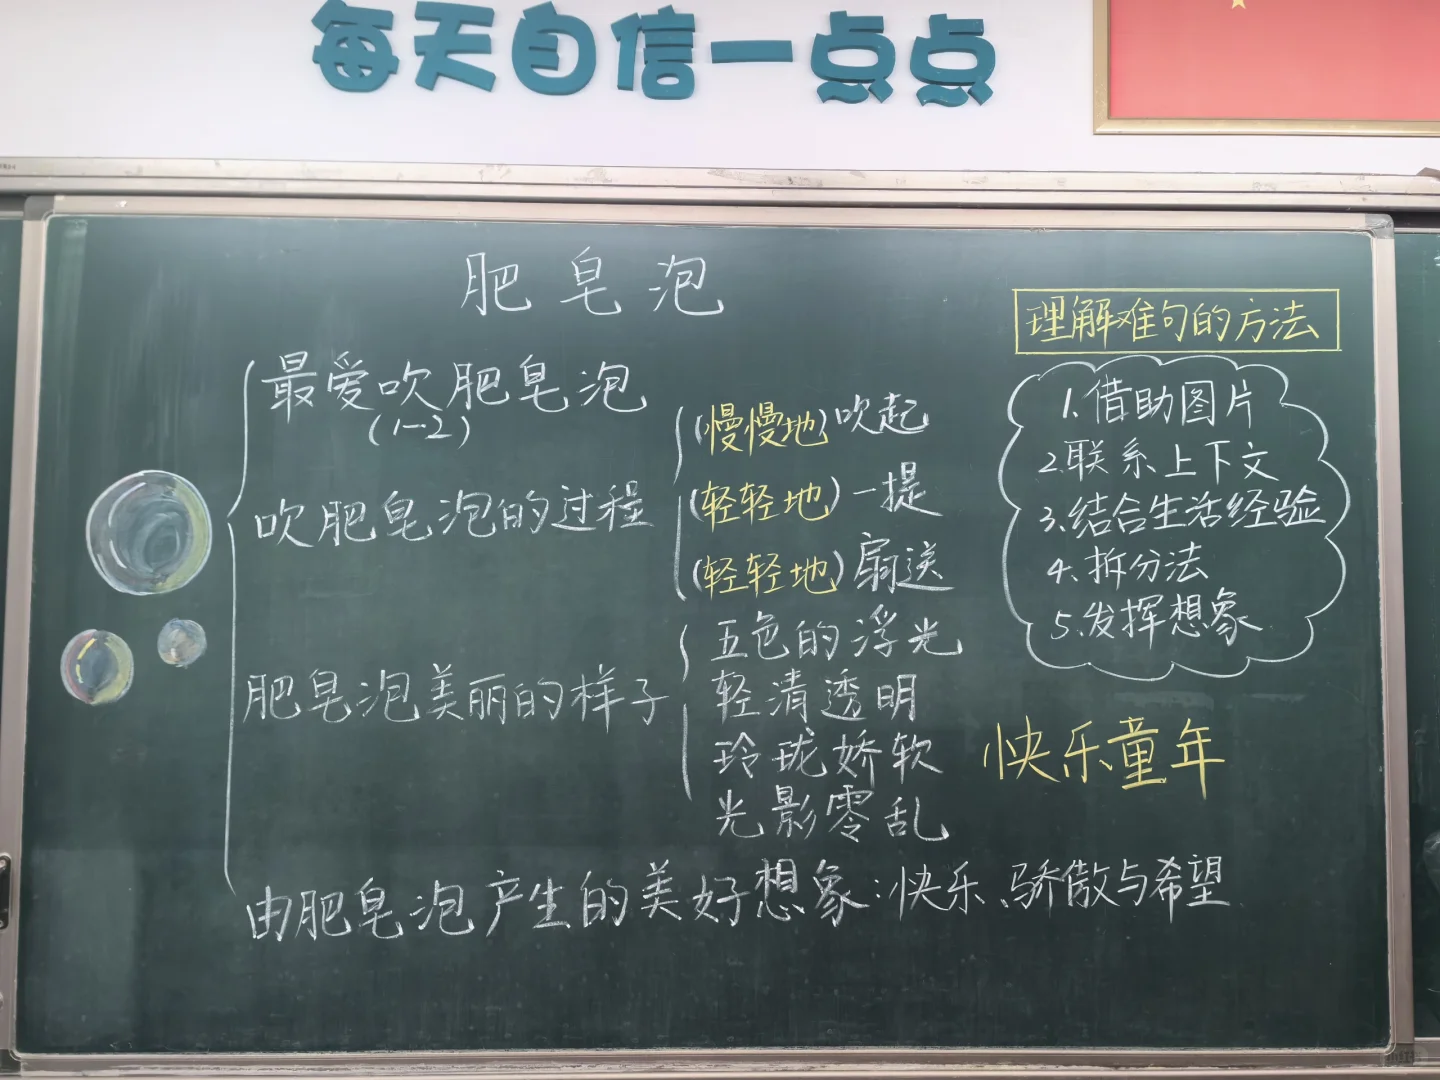 每天自信一点点
肥皂泡
最爱吹肥皂泡
(1-2)
吹肥皂泡的过程
(慢慢地)吹起
(轻轻地)一提
(轻轻地)扇送
肥皂泡美丽的样子
五色的浮光
轻清透明
玲珑娇软
光影零乱
由肥皂泡产生的美好想象:快乐、骄傲与希望
理解难句的方法
1.借助图片
2.联系上下文
3.结合生活经验
4、拆分法
5.发挥想象
快乐童年